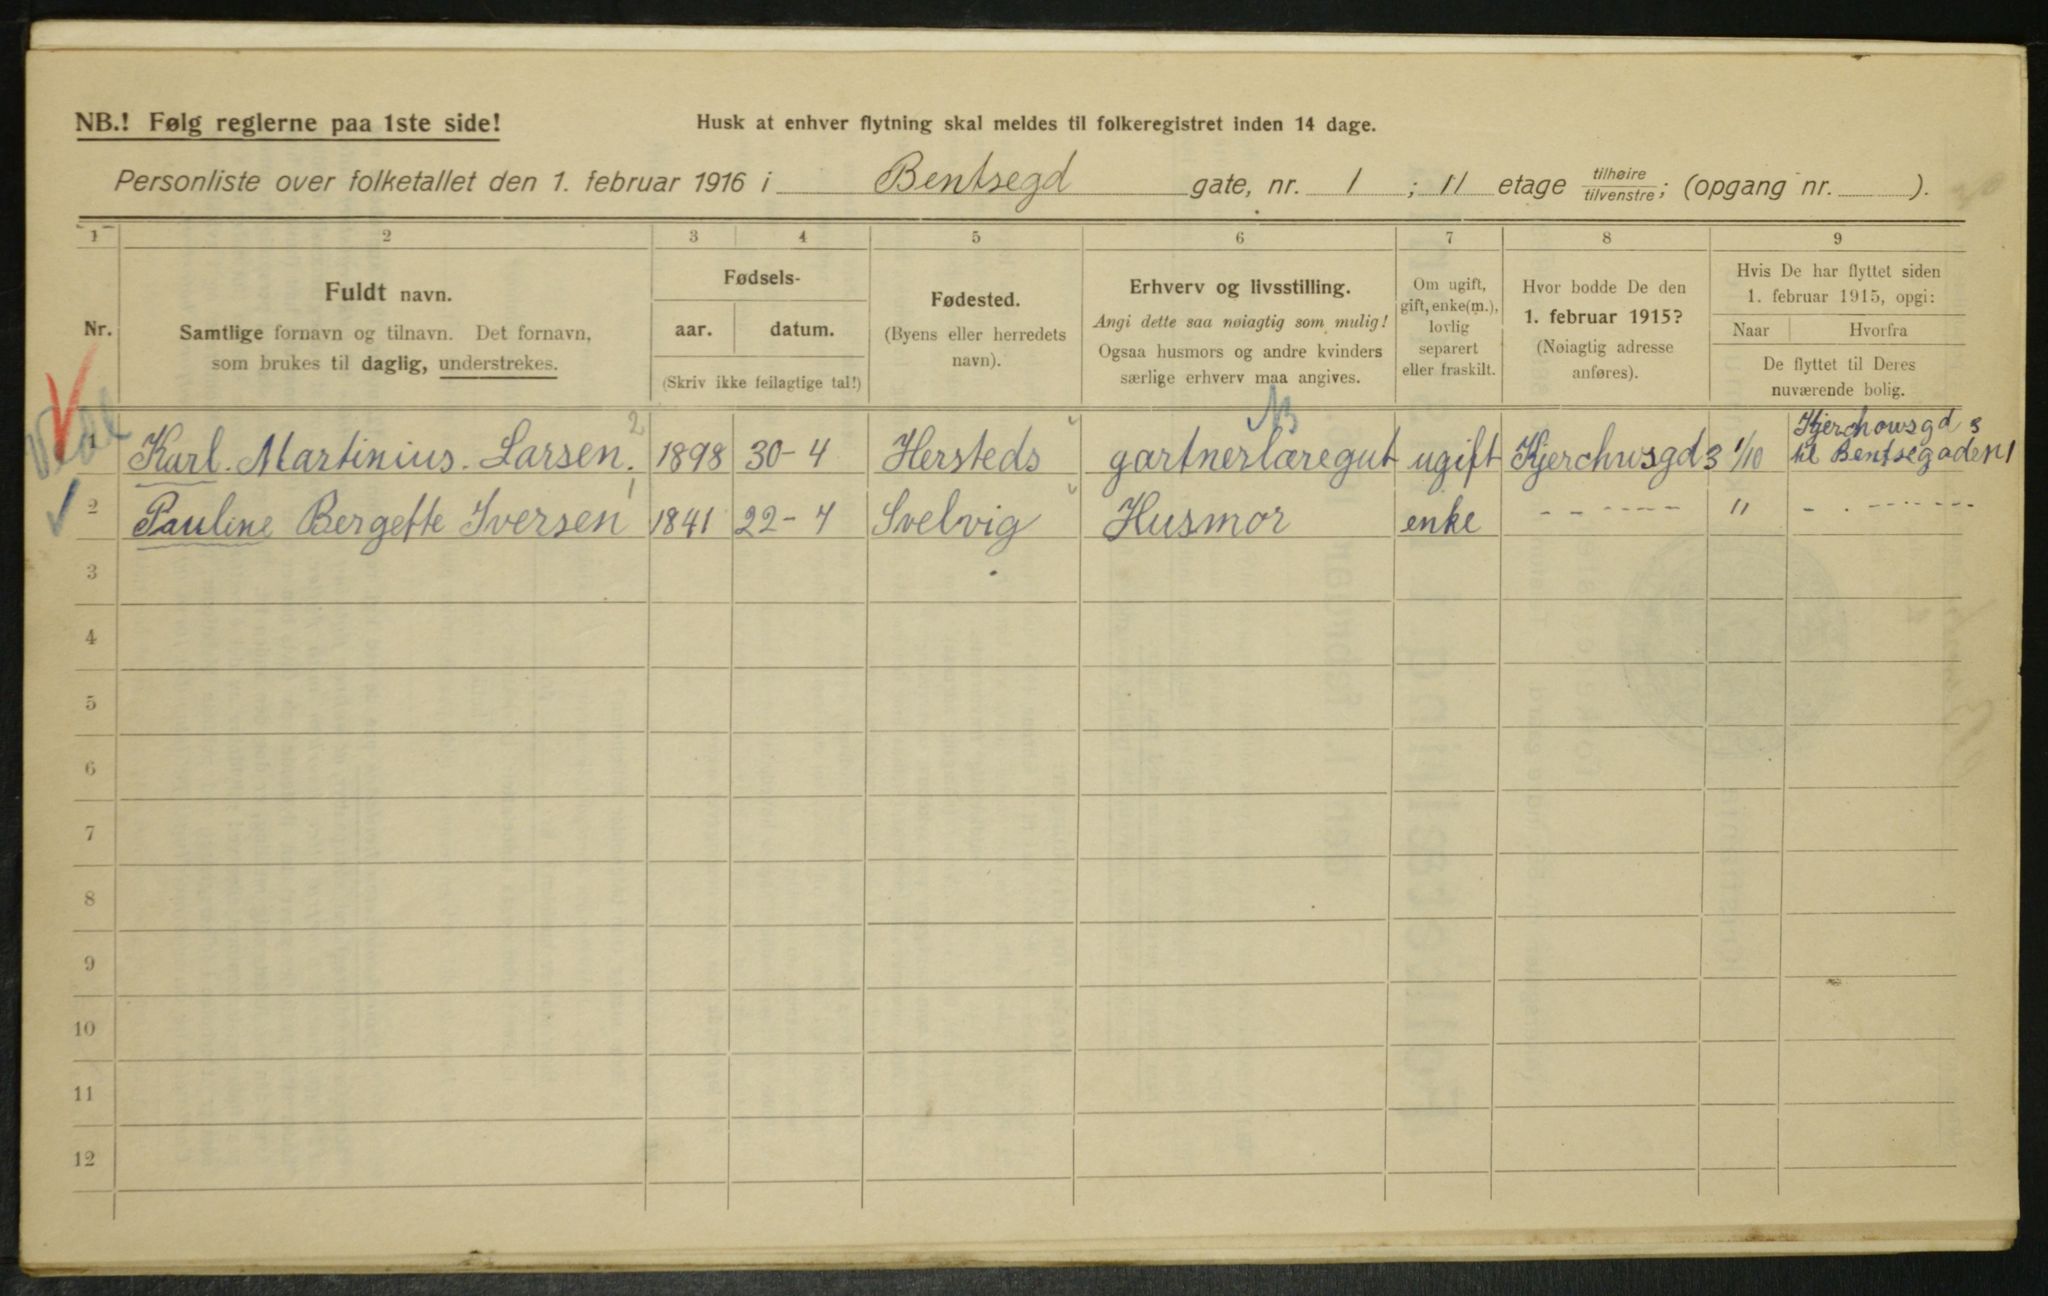 NB.! Følg reglerne paa 1ste side!
Husk at enhver flytning skal meldes til folkeregistret inden 14 dage.
Personliste over folketallet den 1. februar 1916 i Bentsegd gate, nr. 1 ; 11 etage tilhøire/tilvenstre; (opgang nr. ).
1 2 3 4 5 6 7 8 9
Nr.
Fuldt navn.
Samtlige fornavn og tilnavn. Det fornavn,
som brukes til daglig, understrekes.
Fødsels-
aar. datum.
(Skriv ikke feilagtige tal!)
Fødested.
(Byens eller herredets
navn).
Erhverv og livsstilling.
Angi dette saa nøiagtig som mulig!
Ogsaa husmors og andre kvinders
særlige erhverv maa angives.
Om ugift,
gift, enke(m.),
lovlig
separert
eller fraskilt.
Hvor bodde De den
1. februar 1915?
(Nøiagtig adresse
anføres).
Hvis De har flyttet siden
1. februar 1915, opgi:
Naar Hvorfra
De flyttet til Deres
nuværende bolig.
1 Karl. Martinius. Larsen, 1898 30-4 Hersteds gartnerlæregut ugift Kjerchusgd 3 1/10 Kjerchowsgd 3
til Bentsegaden 1
2 Pauline Bergette Iversen 1841 22-4 Svelvig Husmor enke - - - - - - - " - - - - - - - -
3
4
5
6
7
8
9
10
11
12